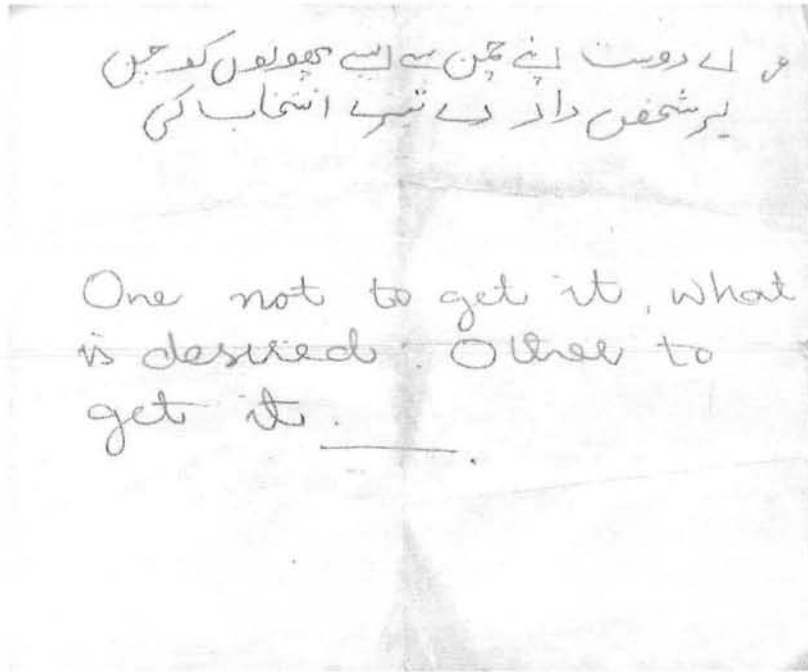 اے دوست اپنے چمن سے ایسے پھولوں کو چن
ہر شخص داد دے تیرے انتخاب کی
One not to get it, what
is desired. Other to
get it ____.